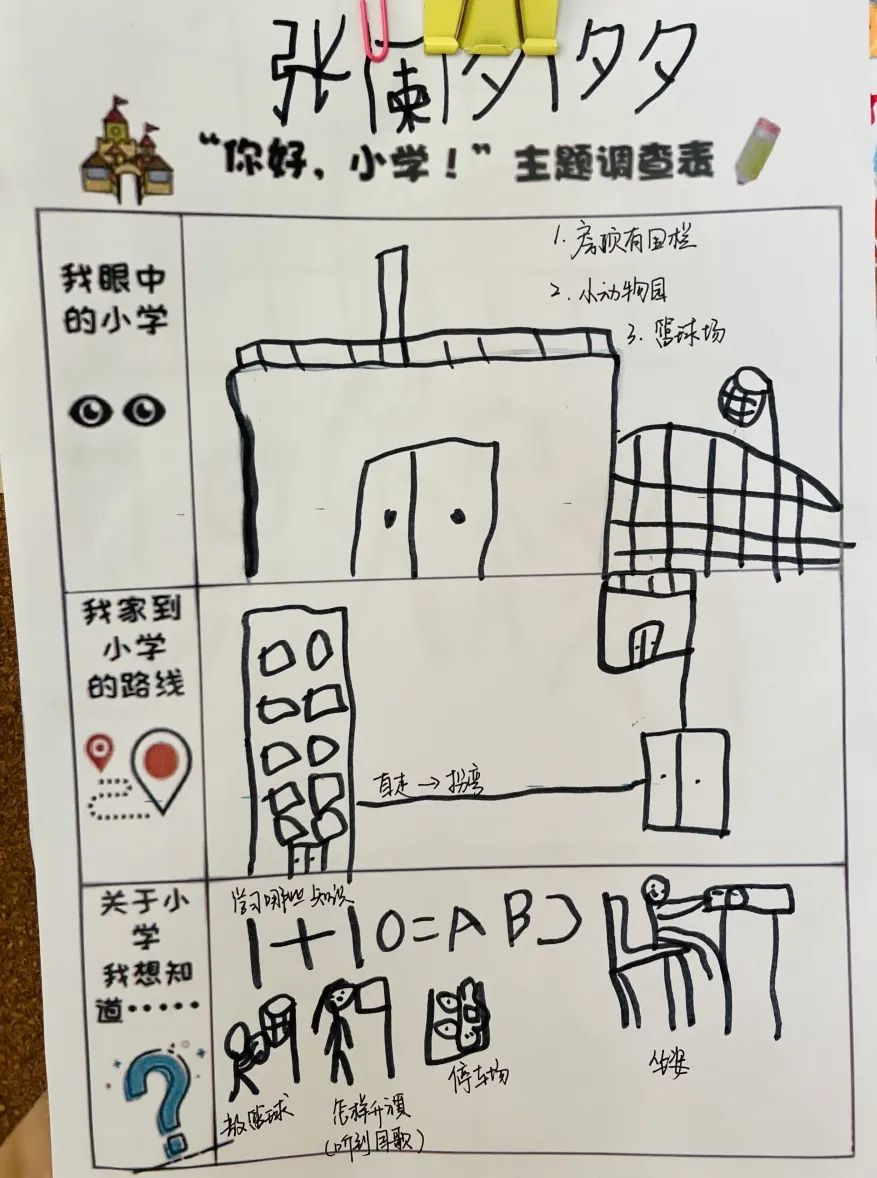 张
夕夕
“你好，小学！”主题调查表
我眼中
的小学
1. 房顶有围栏
2. 小动物园
3. 篮球场
我家到
小学
的路线
直走→拐弯
关于小
学
我想知
道······
学习哪些知识
1+10=AB
坐姿
教篮球
怎样升旗
(听到国歌)
停车场